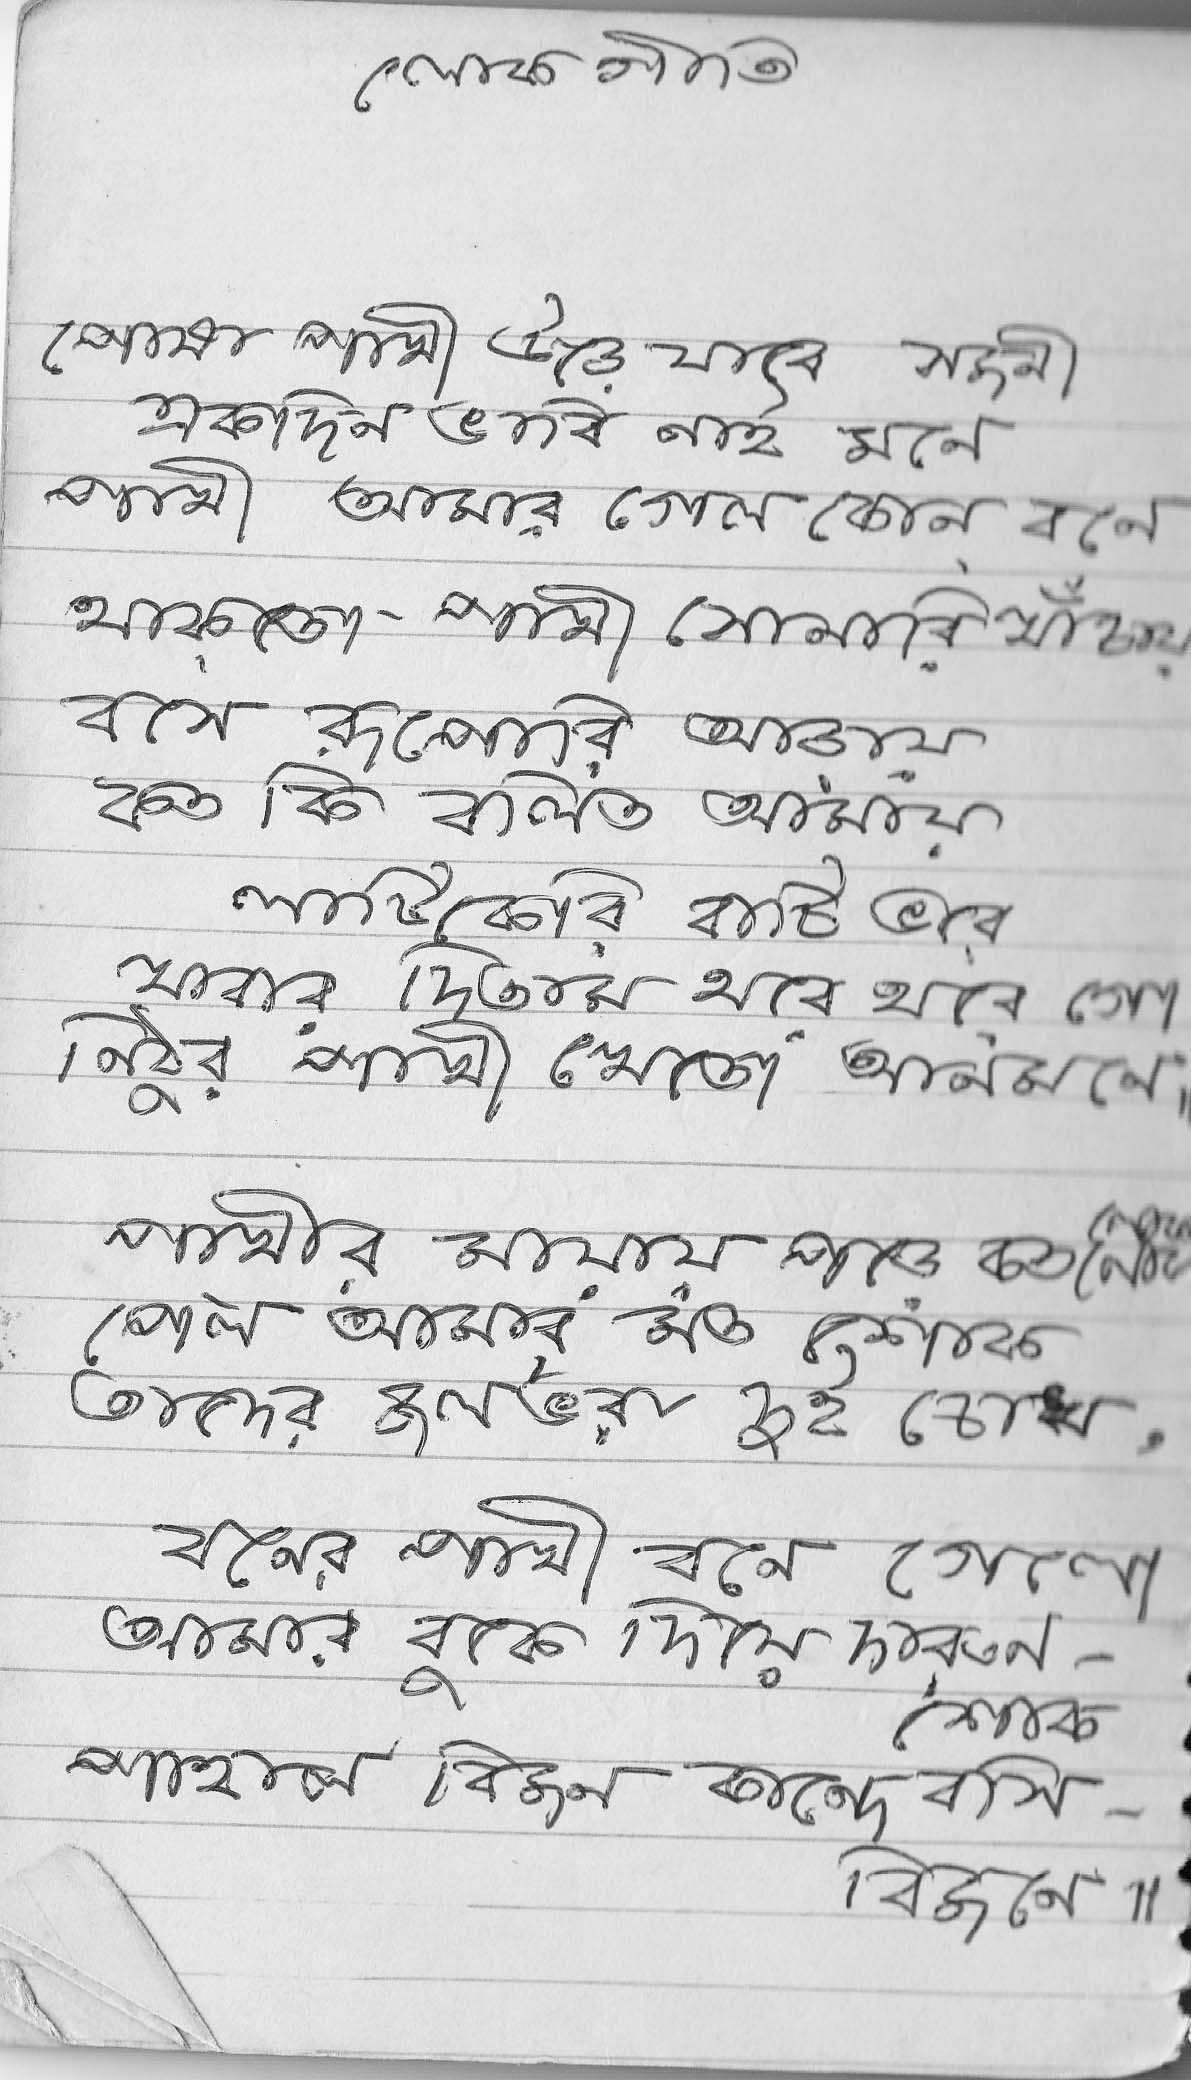 লোকগীতি
পোষা পাখী উড়ে যাবে সজনী
একদিন ভাবি নাই মনে
পাখী আমার গেল কোন্ বনে
থাকতো- পাখী সোনারি খাঁচায়
বসে রূপোরি আড়ায়
কত কি বলিত আমায়
লাটিকেরি বাটি ভরে
খাবার দিতাম থরে থরে গো
নিঠুর পাখী খেতো আনমনে॥
পাখীর মায়ায় পড়ে কত লোক
পেল আমার মত শোক
তাদের জলভরা দুই চোখ,
বনের পাখী বনে গেলো
আমার বুকে দিয়ে দারুন -
শোক
পাহাল বিজন কান্দে বসি -
বিজনে ॥